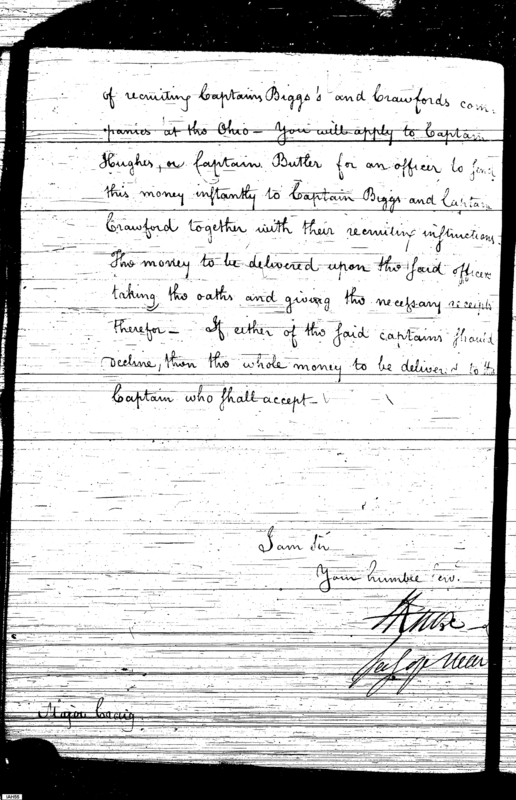 of recruiting Captains Biggs's and Crawfords com-
panies at the Ohio — You will apply to Captain
Hughes, or Captain Butler for an officer to send
this money instantly to Captain Biggs and Captain
Crawford together with their recruiting instructions.
The money to be delivered upon the said officers
taking the oaths and giving the necessary receipts
therefor — If either of the said captains should
decline, then the whole money to be delivered to the
Captain who shall accept —
I am Sir
Your humble Serv.
HKnox
Secy of War
Major Craig
IAH55